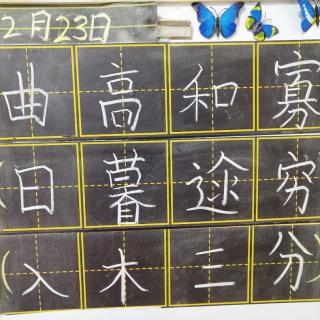 2月23日
曲高和寡
(日暮途穷)
(入木三分)